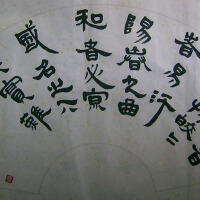 者易汙
陽春之曲
和者必寡
盛名之下
實難